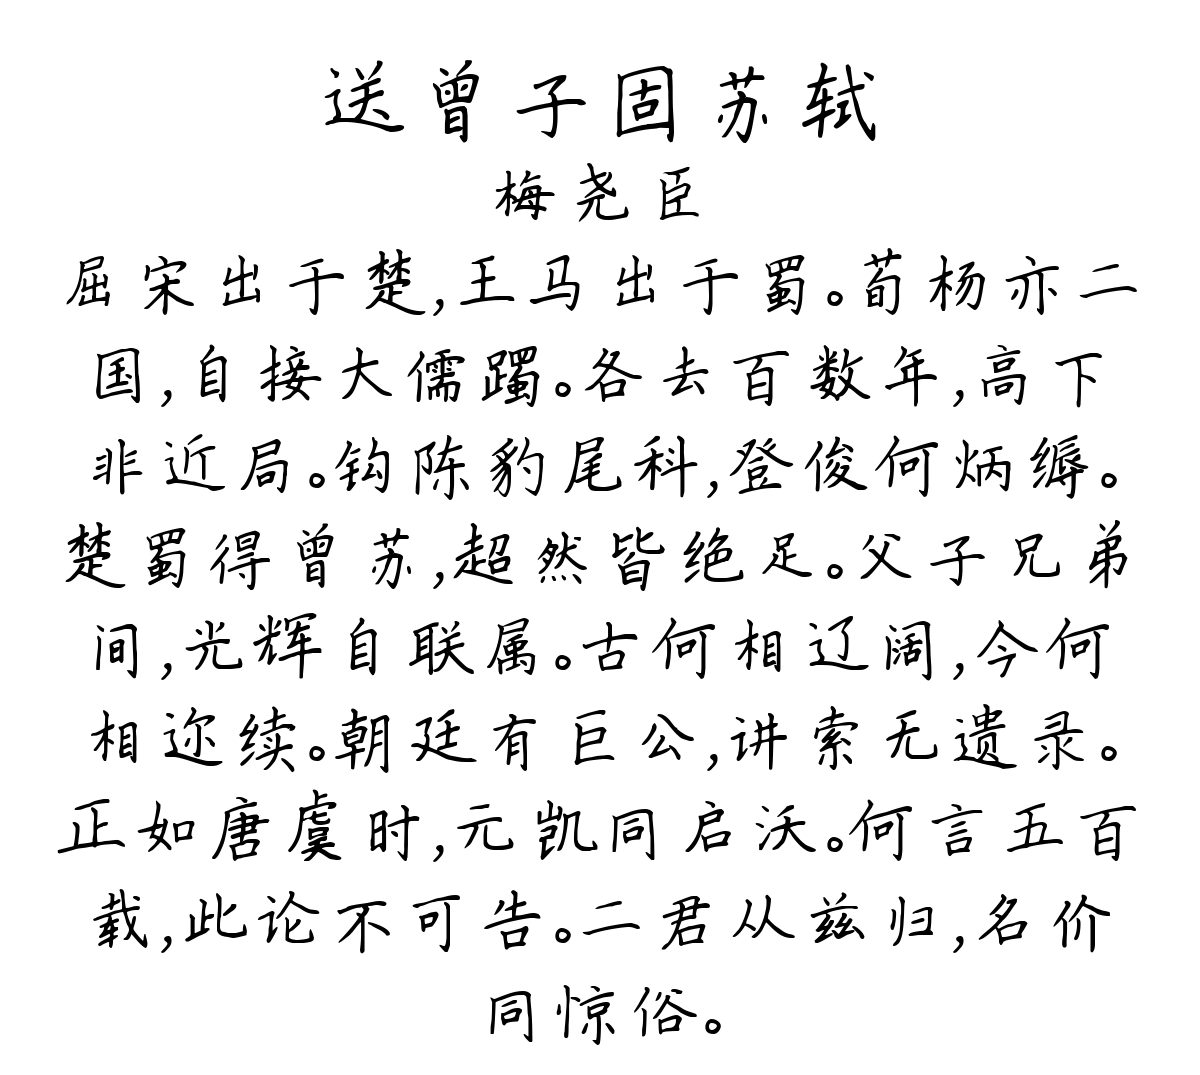 送曾子固苏轼
梅尧臣
屈宋出于楚,王马出于蜀。荀杨亦二
国,自接大儒躅。各去百数年,高下
非近局。钩陈豹尾科,登俊何炳缛。
楚蜀得曾苏,超然皆绝足。父子兄弟
间,光辉自联属。古何相辽阔,今何
相迩续。朝廷有巨公,讲索无遗录。
正如唐虞时,元凯同启沃。何言五百
载,此论不可告。二君从兹归,名价
同惊俗。